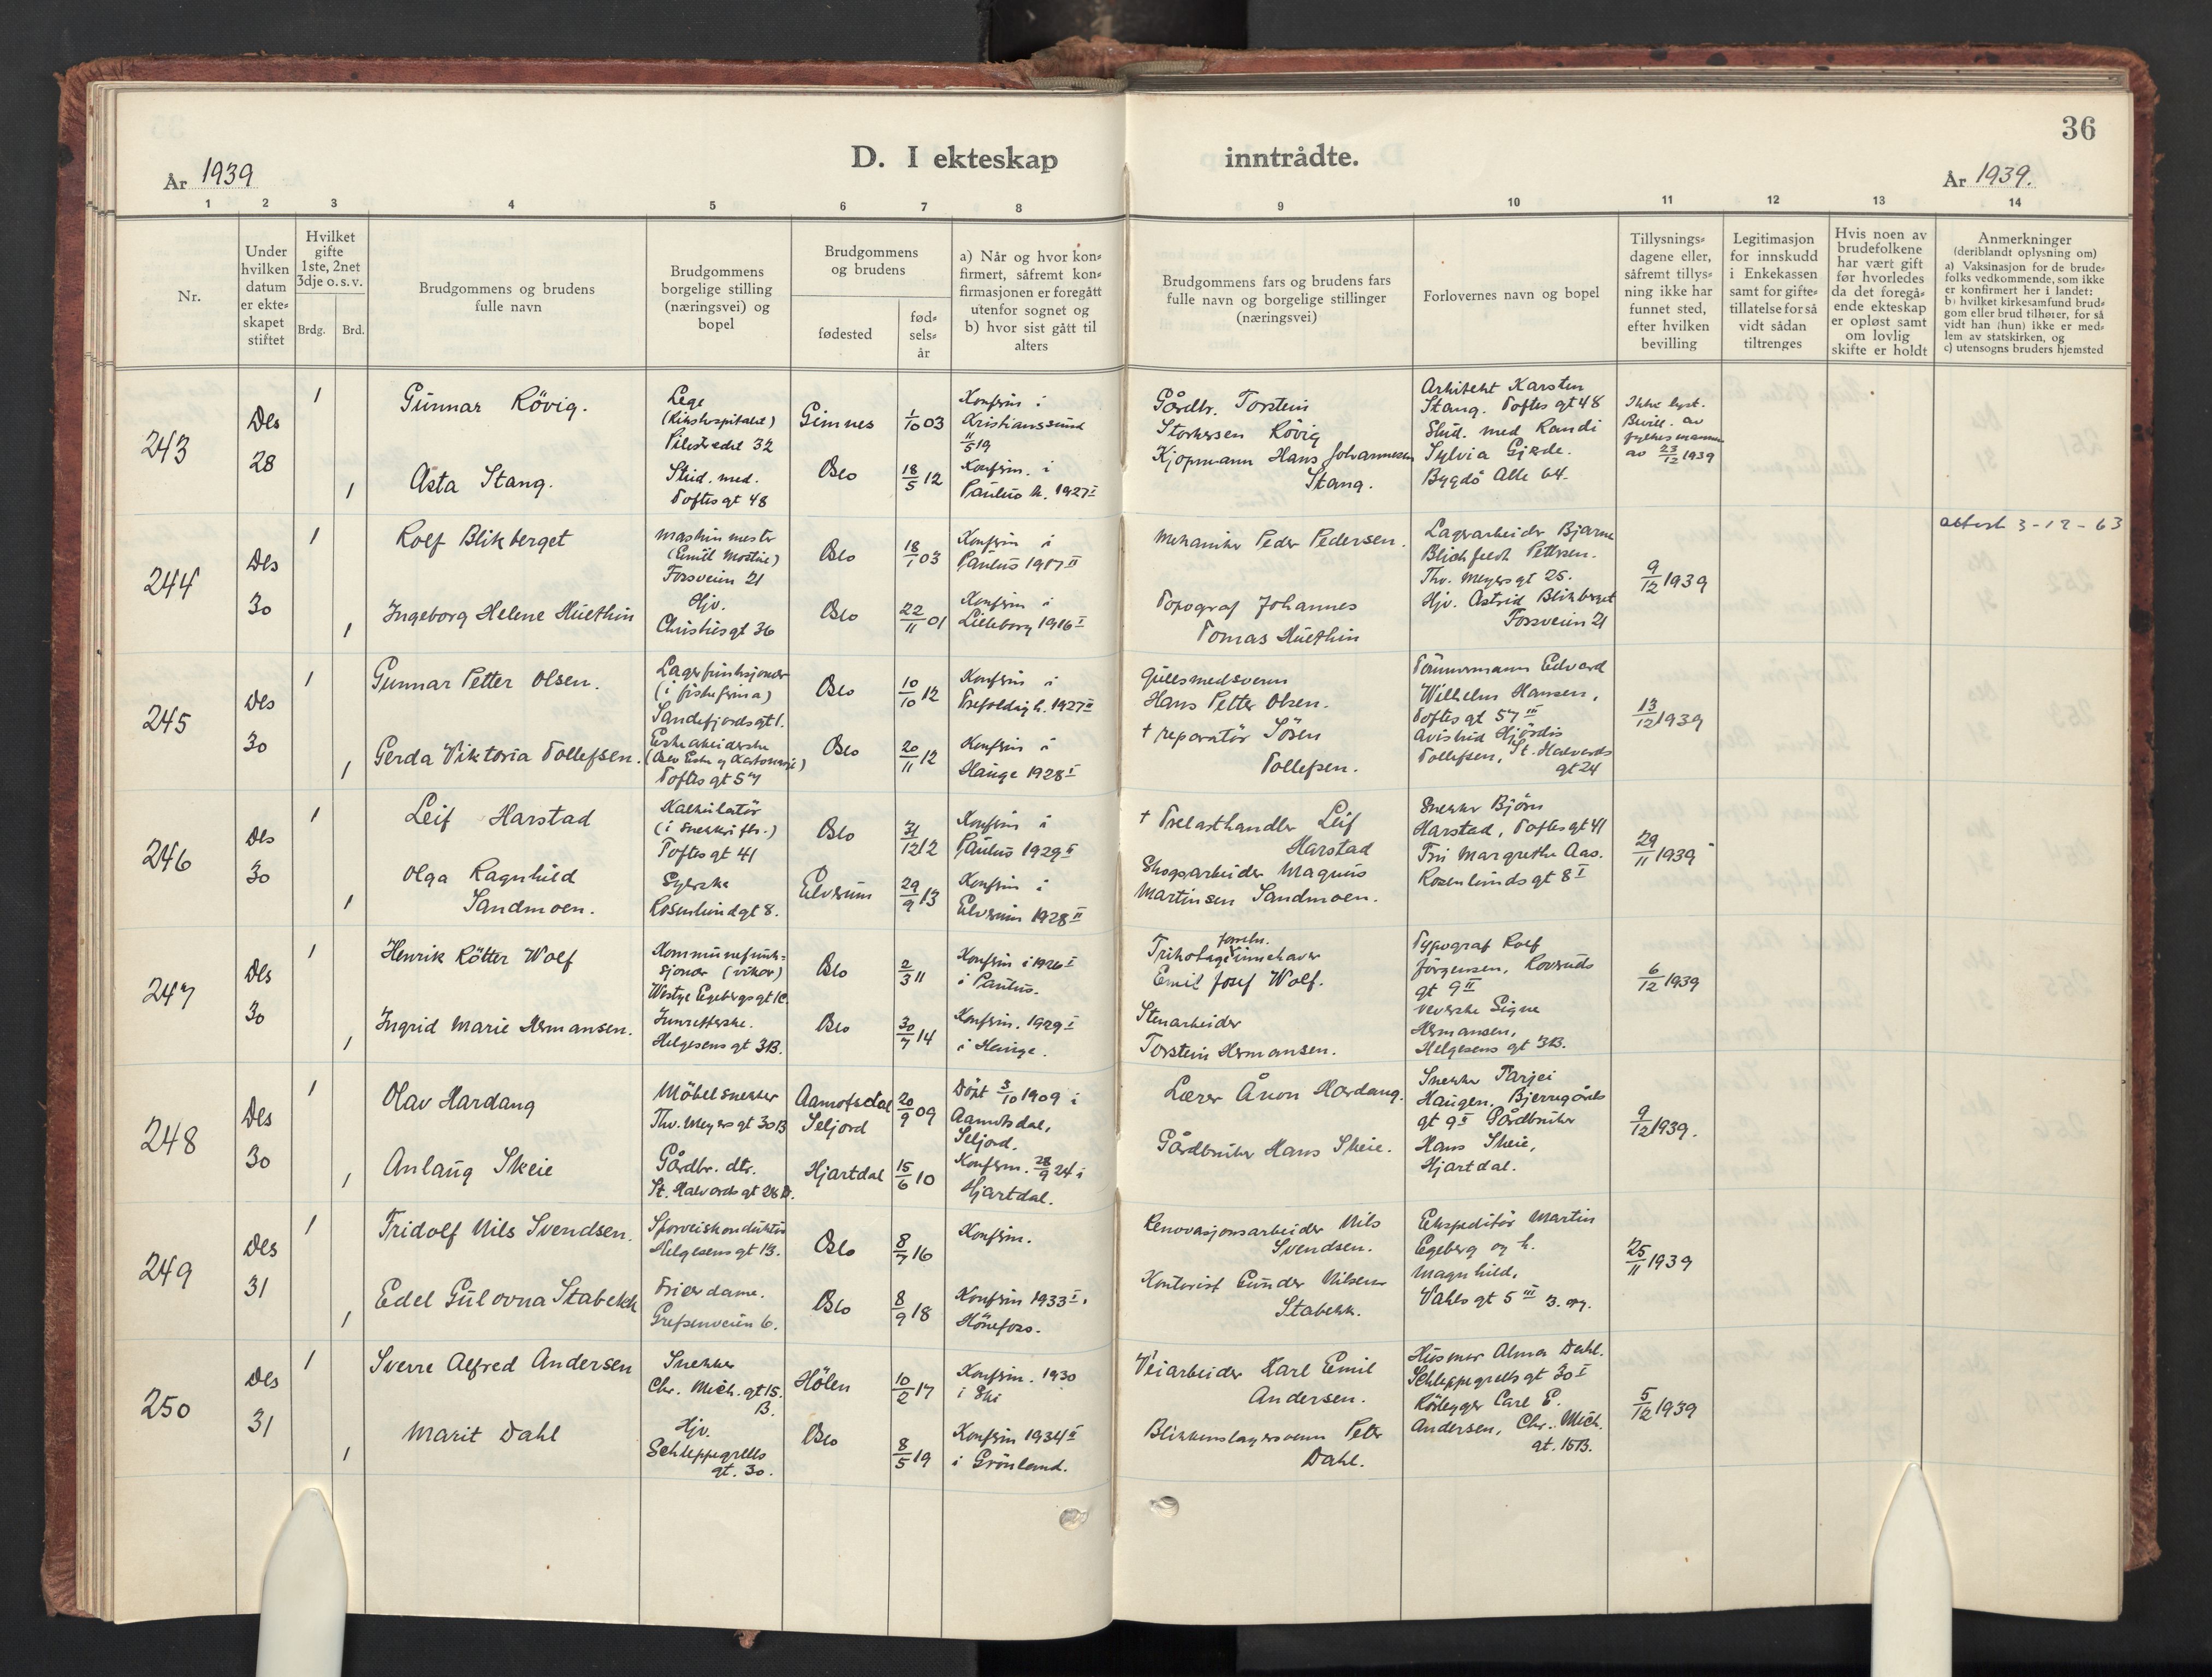 36
D. I ekteskap inntrådte.
År 1939
År 1939.
1 2 3 4 5 6 7 8 9 10 11 12 13 14
Nr.
Under
hvilken
datum
er ekte-
skapet
stiftet
Hvilket
gifte
1ste, 2net
3dje o. s. v.
Brdg. Brd.
Brudgommens og brudens
fulle navn
Brudgommens
borgelige stilling
(næringsvei) og
bopel
Brudgommens
og brudens
fødested
fød-
sels-
år
a) Når og hvor kon-
firmert, såfremt kon-
firmasjonen er foregått
utenfor sognet og
b) hvor sist gått til
alters
Brudgommens fars og brudens fars
fulle navn og borgelige stillinger
(næringsvei)
Forlovernes navn og bopel
Tillysnings-
dagene eller,
såfremt tillys-
ning ikke har
funnet sted,
efter hvilken
bevilling
Legitimasjon
for innskudd
i Enkekassen
samt for gifte-
tillatelse for så
vidt sådan
tiltrenges
Hvis noen av
brudefolkene
har vært gift
før hvorledes
da det foregå-
ende ekteskap
er opløst samt
om lovlig
skifte er holdt
Anmerkninger
(deriblandt oplysning om)
a) Vaksinasjon for de brude-
folks vedkommende, som ikke
er konfirmert her i landet:
b) hvilket kirkesamfund brud-
gom eller brud tilhører, for så
vidt han (hun) ikke er med-
lem av statskirken, og
c) utensogns bruders hjemsted
243
Des
28
1
Gunnar Rövig.
Lege
(Rikshospitalet)
Pilestredet 32
Gimnes
1/10 03
Konfirm i
Kristianssund
11/5 19
Gårdbr. Torstein
Storkersen Rövig
Arkitekt Karsten
Stang. Toftes gt 48
Stud. med Randi
Sylvia Gjerde.
Bygdö Alle 64.
Ikke lyst.
Bevill. av
fylkesmannen
av 23/12 1939
1
Asta Stang.
Stud. med.
Toftes gt 48
Oslo
18/5 12
Konfirm. i
Paulus k. 1927 I
Kjøpmann Hans Johannessen
Stang.
244
Des
30
1
Rolf Blikberget
maskinmester
(Emill Mostue)
Forsveien 21
Oslo
18/1 03
Konfirm i
Paulus 1917 II
Mekaniker Peder Pedersen.
Lagerarbeider Bjarne
Blichfeldt Pettersen.
Thv. Meyers gt 25.
Hjv. Astrid Blikberget
Forsveien 21
9/12 1939
attest 3-12-63
1
Ingeborg Helene Huethin
Hjv.
Christies gt 36
Oslo
22/11 01
Konfirm i
Lilleborg 1916 I
Topograf Johannes
Tomas Huethin
245
Des
30
1
Gunnar Petter Olsen.
Lagerfunksjonær
(i fiskefirma)
Sandefjords gt 1.
Oslo
10/10 12
Konfirm i
Trefoldigh. 1927 II
Gullsmedsvenn
Hans Petter Olsen.
Tömmermann Edvard
Wilhelm Hansen,
Toftes gt 57 III
Avisbud Hjördis
Tollefsen, St. Halvards
gt 24
13/12 1939
1
Gerda Viktoria Tollefsen.
Eskearbeiderske
(Oslo Eske og Kartonasje)
Toftes gt 57
Oslo
20/11 12
Konfirm i
Hauge 1928 I
† reparatör Sören
Tollefsen.
246
Des
30
1
Leif Harstad
Kalkulatör
(i snekkerifbr.)
Toftes gt 41
Oslo
31/12 12
Konfirm i
Paulus 1929 II
† Trelasthandler Leif
Harstad
Snekker Björn
Harstad, Toftes gt 41
Fru Margrethe Aas.
Rosenlunds gt 8 I
29/11 1939
1
Olga Ragnhild
Sandmoen.
Syerske
Rosenlund gt 8.
Elverum
29/9 13
Konfirm i
Elverum 1928 II
Skogsarbeider Magnus
Martinsen Sandmoen.
247
Des
30
1
Henrik Rötter Wolf
Kommunefunk-
sjonær (vikar)
Westye Egebergs gt 1C.
Oslo
2/3 11
Konfirm i 1926 I
i Paulus.
forretn.
Trikotageinnehaver
Emil Josef Wolf.
Typograf Rolf
Jörgensen, Rovruds
gt 9 II
Veverske Signe
Hermansen,
Helgesens gt 3B.
6/12 1939
1
Ingrid Marie Hermansen.
Innretterske.
Helgesens gt 3B.
Oslo
30/7 14
Konfirm. 1929 I
i Hauge.
Stenarbeider
Torstein Hermansen.
248
Des
30
1
Olav Hardang
Möbelsnekker
Thv. Meyers gt 30B
Aamotsdal
Seljord
20/9 09
Döpt 3/10 1909 i
Aamotsdal,
Seljord.
Lærer Ånon Hardang.
Snekker Tarjei
Haugen, Bjerregårds
gt 9 I Gårdbruker
Hans Skeie,
Hjartdal.
9/12 1939.
1
Anlaug Skeie
Gårdbr. dtr.
St. Halvards gt 28 B.
Hjartdal
15/6 10
Konfirm. 28/9 24 i
Hjartdal.
Gårdbruker Hans Skeie.
249
Des
31
1
Fridolf Nils Svendsen.
Sporveiskonduktör
Helgesens gt 13.
Oslo
8/7 16
Konfirm.
Renovasjonsarbeider Nils
Svendsen.
Ekspeditör Martin
Egeberg og h.
Magnhild,
Vahls gt 5 III 3. opg.
25/11 1939
1
Edel Gulovna Stabekk
Friserdame.
Grefsenveien 6.
Oslo
8/9 18
Konfirm 1933 I i
Hönefoss.
Kontorist Gunder Nilsen
Stabekk.
250
Des
31
1
Sverre Alfred Andersen
Snekker
Chr. Mich. gt 15.
B.
Hölen
10/2 17
Konfirm. 1930
i Ski
Veiarbeider Karl Emil
Andersen.
Husmor Alma Dahl.
Schleppegrells gt 30 I
Rörlegger Carl E.
Andersen, Chr. Mich.
gt. 15B.
5/12 1939
1
Marit Dahl
Hjv.
Schleppegrells
gt. 30.
Oslo
8/5 19
Konfirm 1934 II
i Grönland.
Blikkenslagersvenn Peter
Dahl.